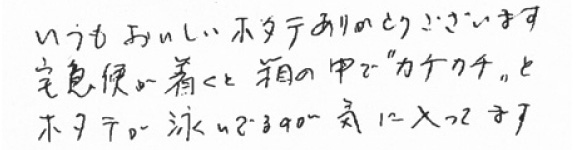 いつもおいしいホタテありがとうございます
宅急便が着くと箱の中で"カチカチ"と
ホタテが泳いでるのが気に入ってます